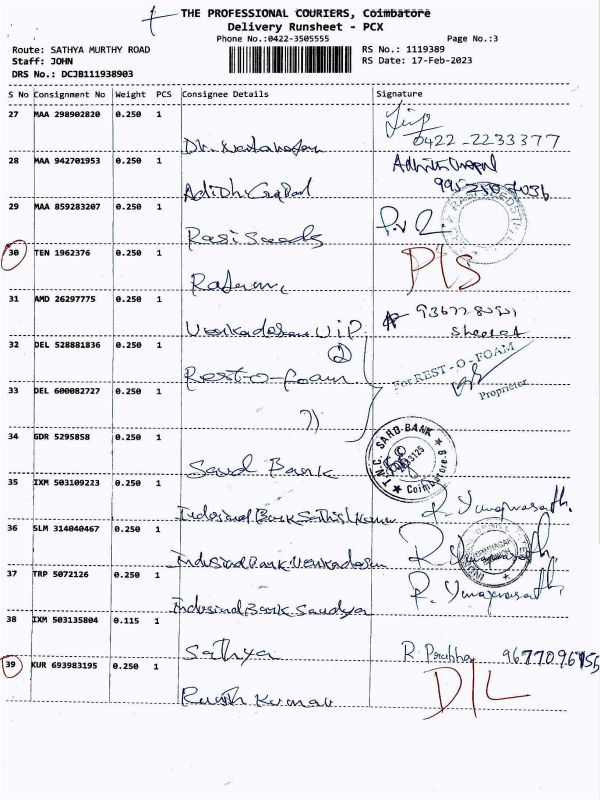 THE PROFESSIONAL COURIERS, Coimbatore
Delivery Runsheet - PCX
Phone No.:0422-3505555
Page No.:3
Route: SATHYA MURTHY ROAD
RS No.: 1119389
Staff: JOHN
RS Date: 17-Feb-2023
DRS No.: DCJB111938903
S No Consignment No Weight PCS Consignee Details Signature
27 MAA 298902820 0.250 1
0422-2233377
28 MAA 942701953 0.250 1
29 MAA 859283207 0.250 1
Rasi Seeds
30 TEN 1962376 0.250 1
31 AMD 26297775 0.250 1
Venkadesan VIP
32 DEL 528881836 0.250 1
Rest-o-foam
For REST-O-FOAM
Proprietor
33 DEL 600082727 0.250 1
34 GDR 5295858 0.250 1
Sard Bank
T.N.C. SARD-BANK
Coimbatore-9
35 IXM 503109223 0.250 1
Indusind Bank Sathish Kumar
36 SLM 314040467 0.250 1
Indusind Bank Venkadesan
37 TRP 5072126 0.250 1
Indusind Bank Sandya
38 IXM 503135804 0.115 1
Sathya R. Prabha
39 KUR 693983195 0.250 1
D/L